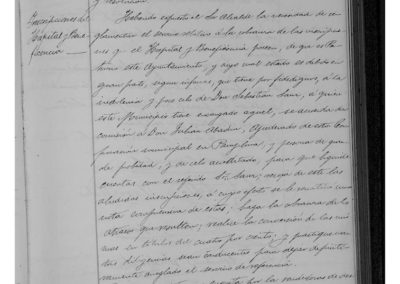 Inscripciones del
Hospital y Bene
ficencia
Habiendo espuesto el Sr. Alcalde la necesidad de re
glamentar el servicio relativo á la cobranza de las inscripcio
nes que el Hospital y Beneficencia poseen, de que está
este Ayuntamiento, y cuyo mal estado es debido en
gran parte, segun informes que tiene por fidedignos, á la
y poco celo de Don Sebastian á quien
este Municipio tiene encargado aquel, se acuerda dar
comision á Don Julian Apoderado de esta Cor
poracion municipal en Pamplona, y persona de gran
de probidad, y de celo acreditado, para que liquide
cuentas con el referido Sr. recoja de este las
aludidas inscripciones, á cuyo efecto se le remitirá una
nota comprensiva de estas; haga la cobranza de los
atrasos que resulten; realice la conversion de las mis
mas en titulos del cuatro por ciento; y practique cuan
tas gestiones sean conducentes para dejar definitiva
mente arreglado el servicio de referencia.